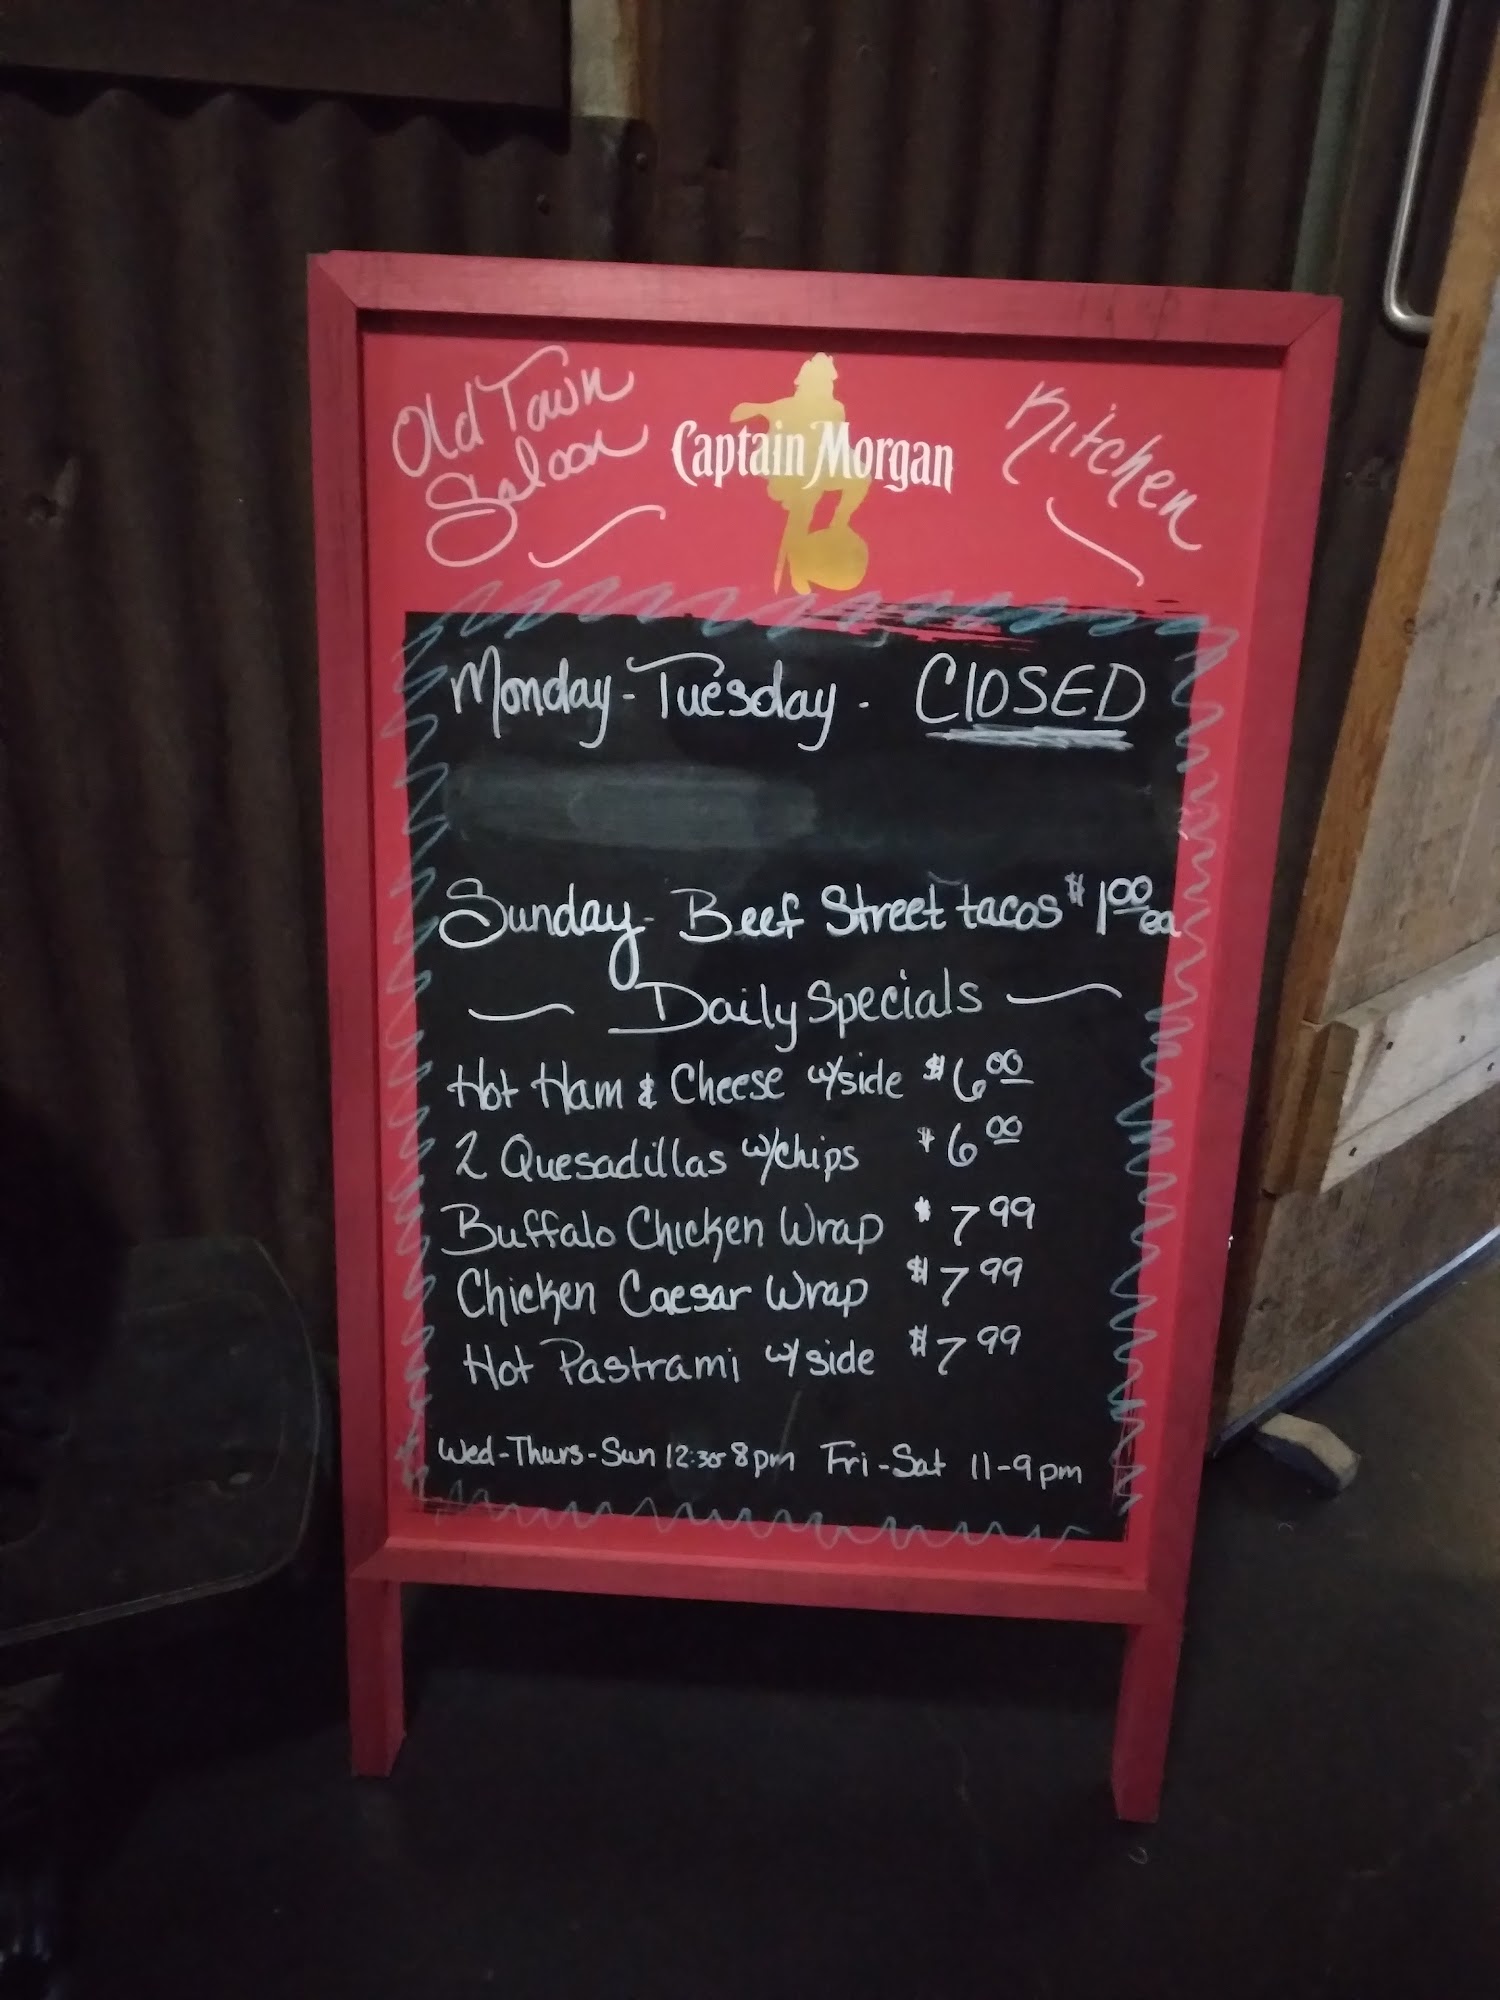 Old Town
Saloon
Captain Morgan
Kitchen
Monday - Tuesday - CLOSED
Sunday - Beef Street tacos $1.00 ea
Daily Specials
Hot Ham & Cheese w/side $6.00
2 Quesadillas w/chips $6.00
Buffalo Chicken Wrap $7.99
Chicken Caesar Wrap $7.99
Hot Pastrami w/side $7.99
Wed-Thurs-Sun 12:30-8pm Fri-Sat 11-9pm